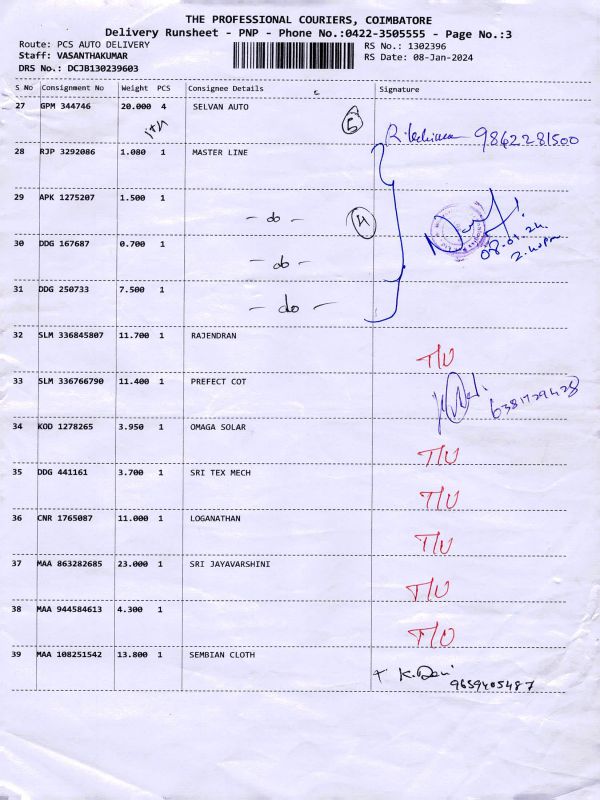 THE PROFESSIONAL COURIERS, COIMBATORE
Delivery Runsheet - PNP - Phone No.:0422-3505555 - Page No.:3
Route: PCS AUTO DELIVERY RS No.: 1302396
Staff: VASANTHAKUMAR RS Date: 08-Jan-2024
DRS No.: DCJB130239603
S No Consignment No Weight PCS Consignee Details Signature
27 GPM 344746 20.000 4 SELVAN AUTO
5 9842281500
28 RJP 3292086 1.080 1 MASTER LINE
29 APK 1275207 1.500 1
- do - 4
08.01.24
30 DDG 167687 0.700 1
- do -
31 DDG 250733 7.500 1
- do -
32 SLM 336845807 11.700 1 RAJENDRAN
T/U
33 SLM 336766790 11.400 1 PREFECT COT
6381729428
34 KOD 1278265 3.950 1 OMAGA SOLAR
T/U
35 DDG 441161 3.700 1 SRI TEX MECH
T/U
36 CNR 1765087 11.000 1 LOGANATHAN
T/U
37 MAA 863282685 23.000 1 SRI JAYAVARSHINI
T/U
38 MAA 944584613 4.300 1
T/U
39 MAA 108251542 13.800 1 SEMBIAN CLOTH
K. Devi
9659405487